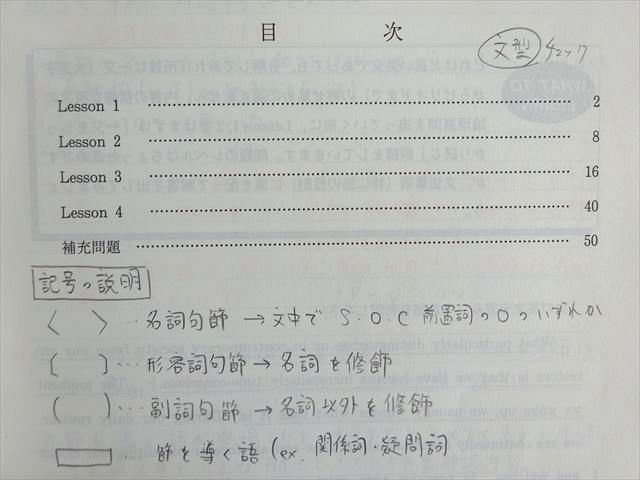 目 次
文型 チェック
Lesson 1 …… 2
Lesson 2 …… 8
Lesson 3 …… 16
Lesson 4 …… 40
補充問題 …… 50
記号の説明
〈 〉… 名詞句節 → 文中で S・O・C 前置詞のOのいずれか
[ ]… 形容詞句節 → 名詞を修飾
( )… 副詞句節 → 名詞以外を修飾
… 節を導く語 (ex. 関係詞・疑問詞